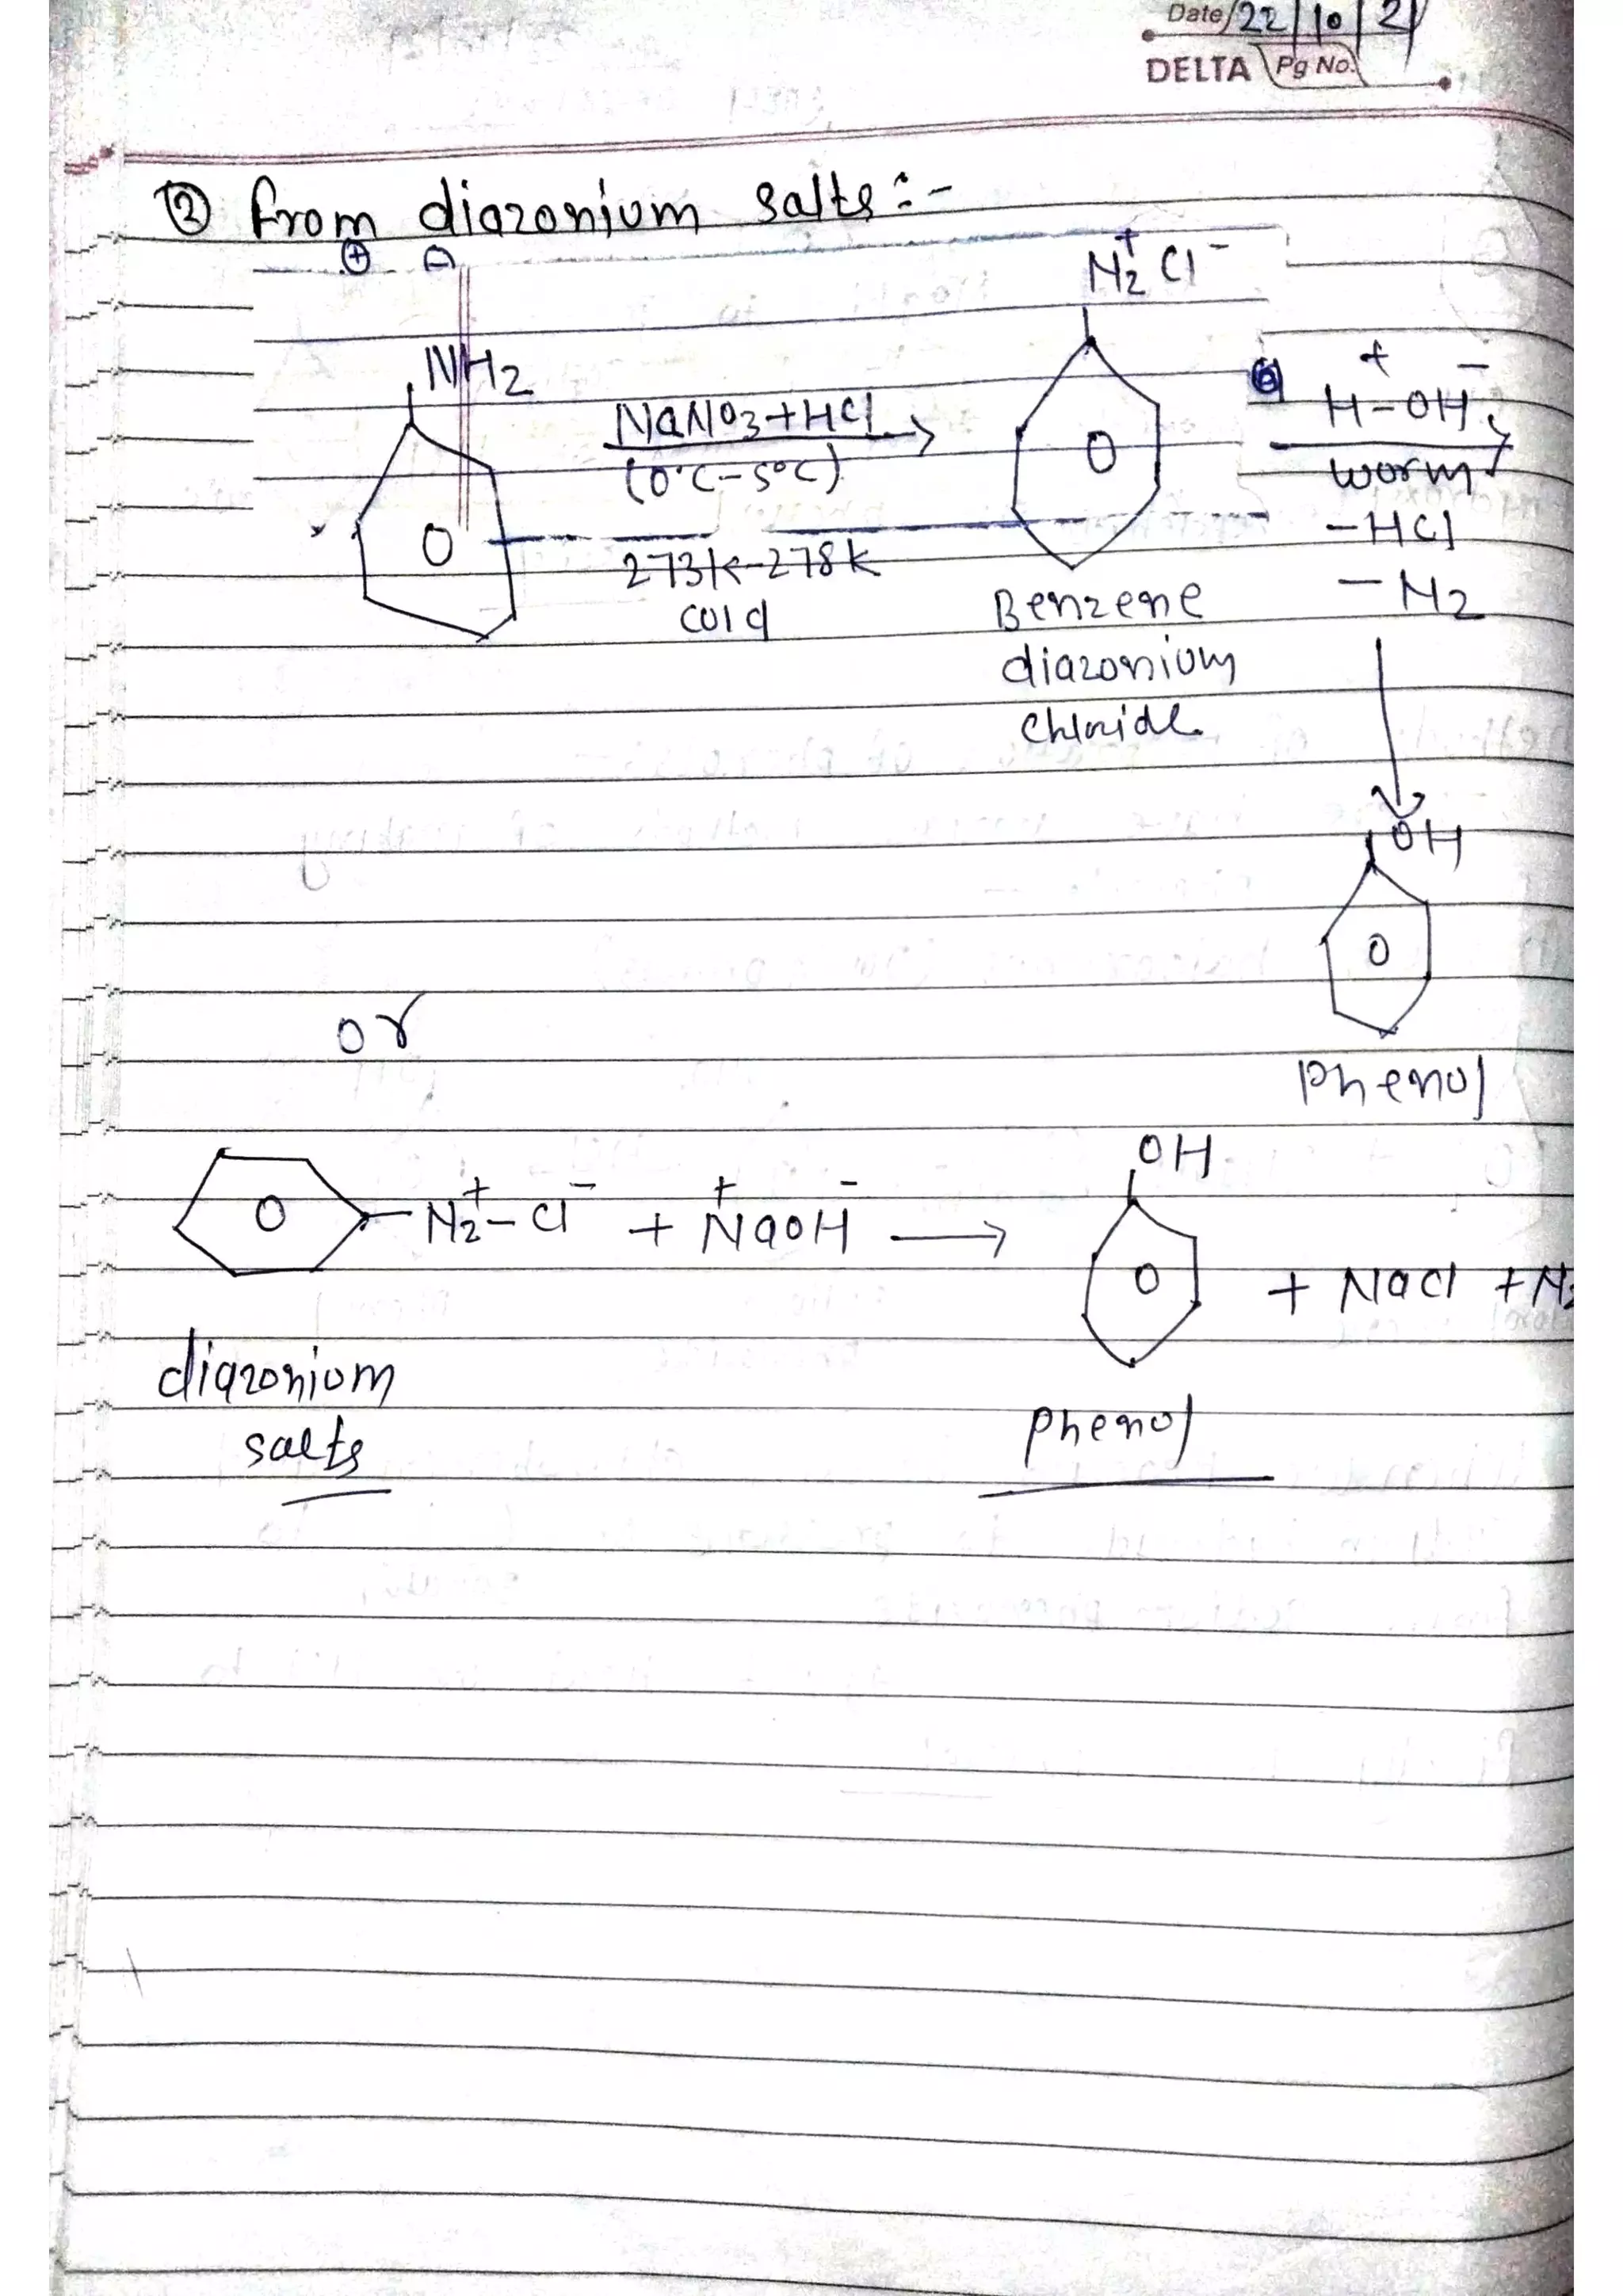 Date/22/10/21
DELTA Pg No.
② from diazonium salts:-
⊕ ⊖
N₂⁺Cl⁻
NH₂
NaNO₃+HCl
(0°C-5°C)
273K-278K
cold
Benzene
diazonium
chloride
+ -
H-OH
worm
-HCl
-N₂
OH
Phenol
or
N₂⁺-Cl⁻ + Na⁺OH⁻ → OH + NaCl + N₂
diazonium
salts
phenol